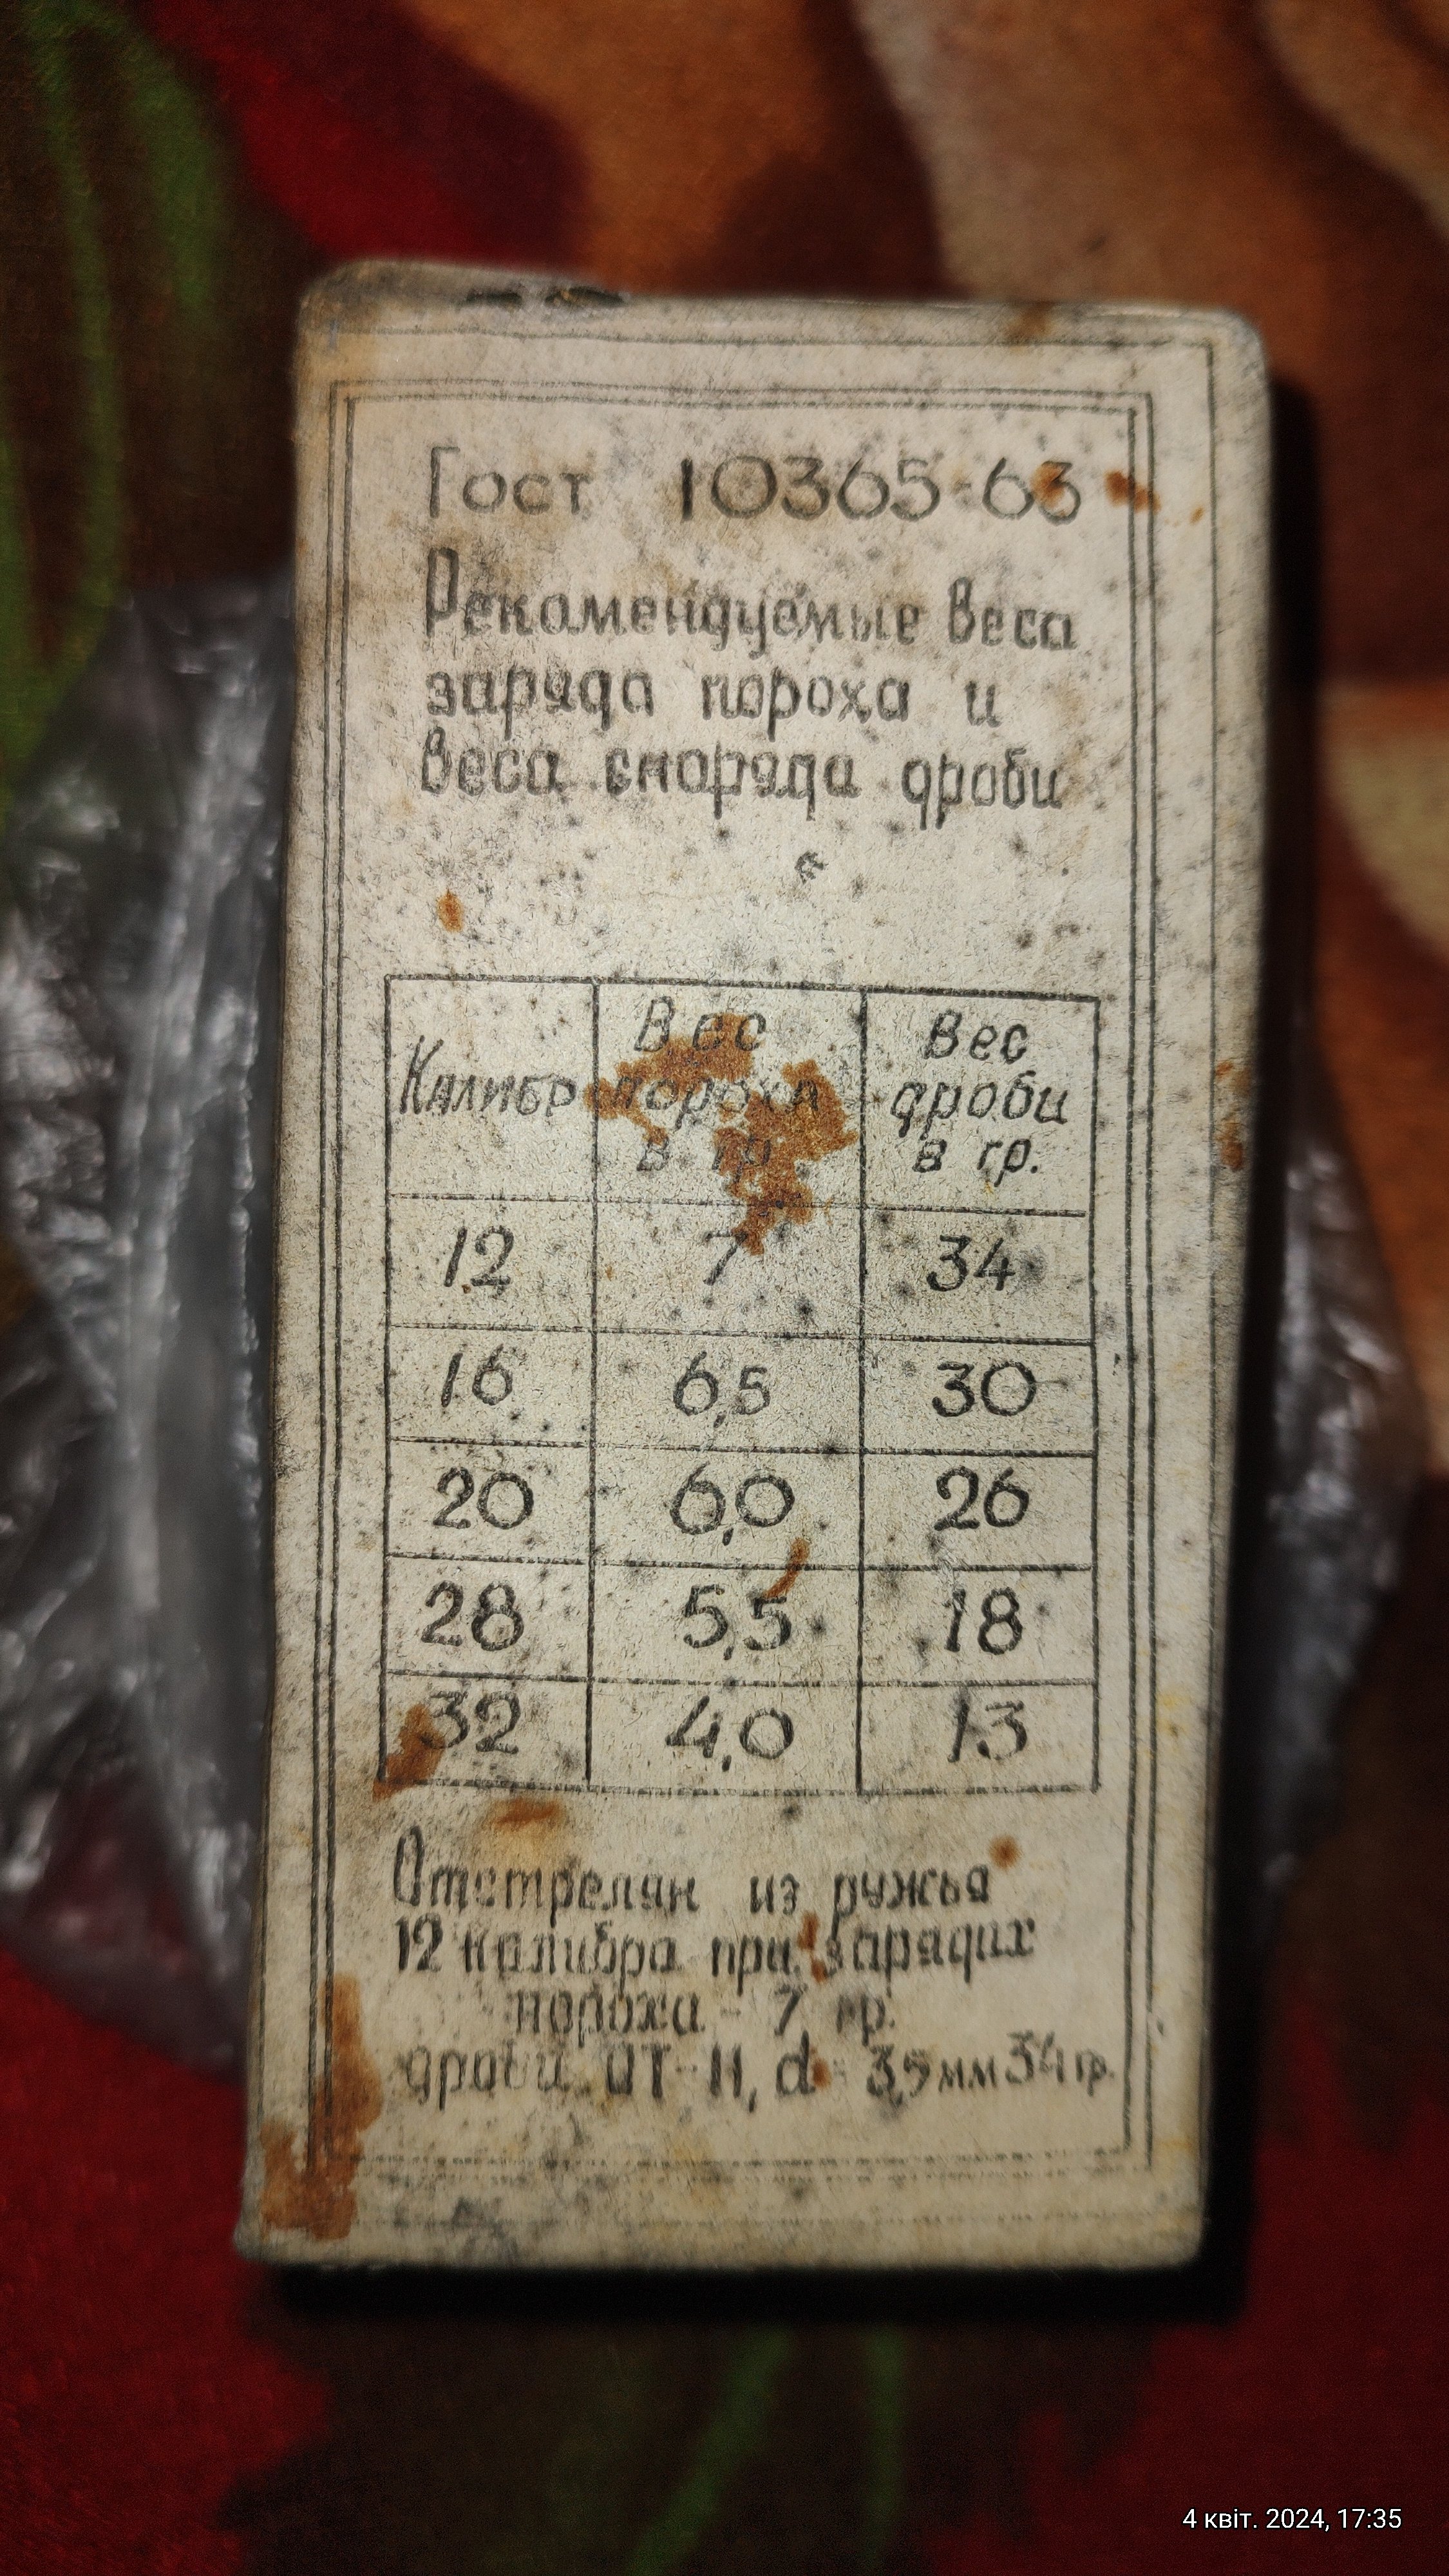 Гост 10365-63
Рекомендуемые веса
заряда пороха и
веса снаряда дроби
Калибр Вес пороха в гр. Вес дроби в гр.
12 7 34
16 6,5 30
20 6,0 26
28 5,5 18
32 4,0 13
Отстрелян из ружья
12 калибра при зарядах
пороха - 7 гр.
дроби ОТ-Н, d = 3,5 мм 34 гр.
4 квіт. 2024, 17:35